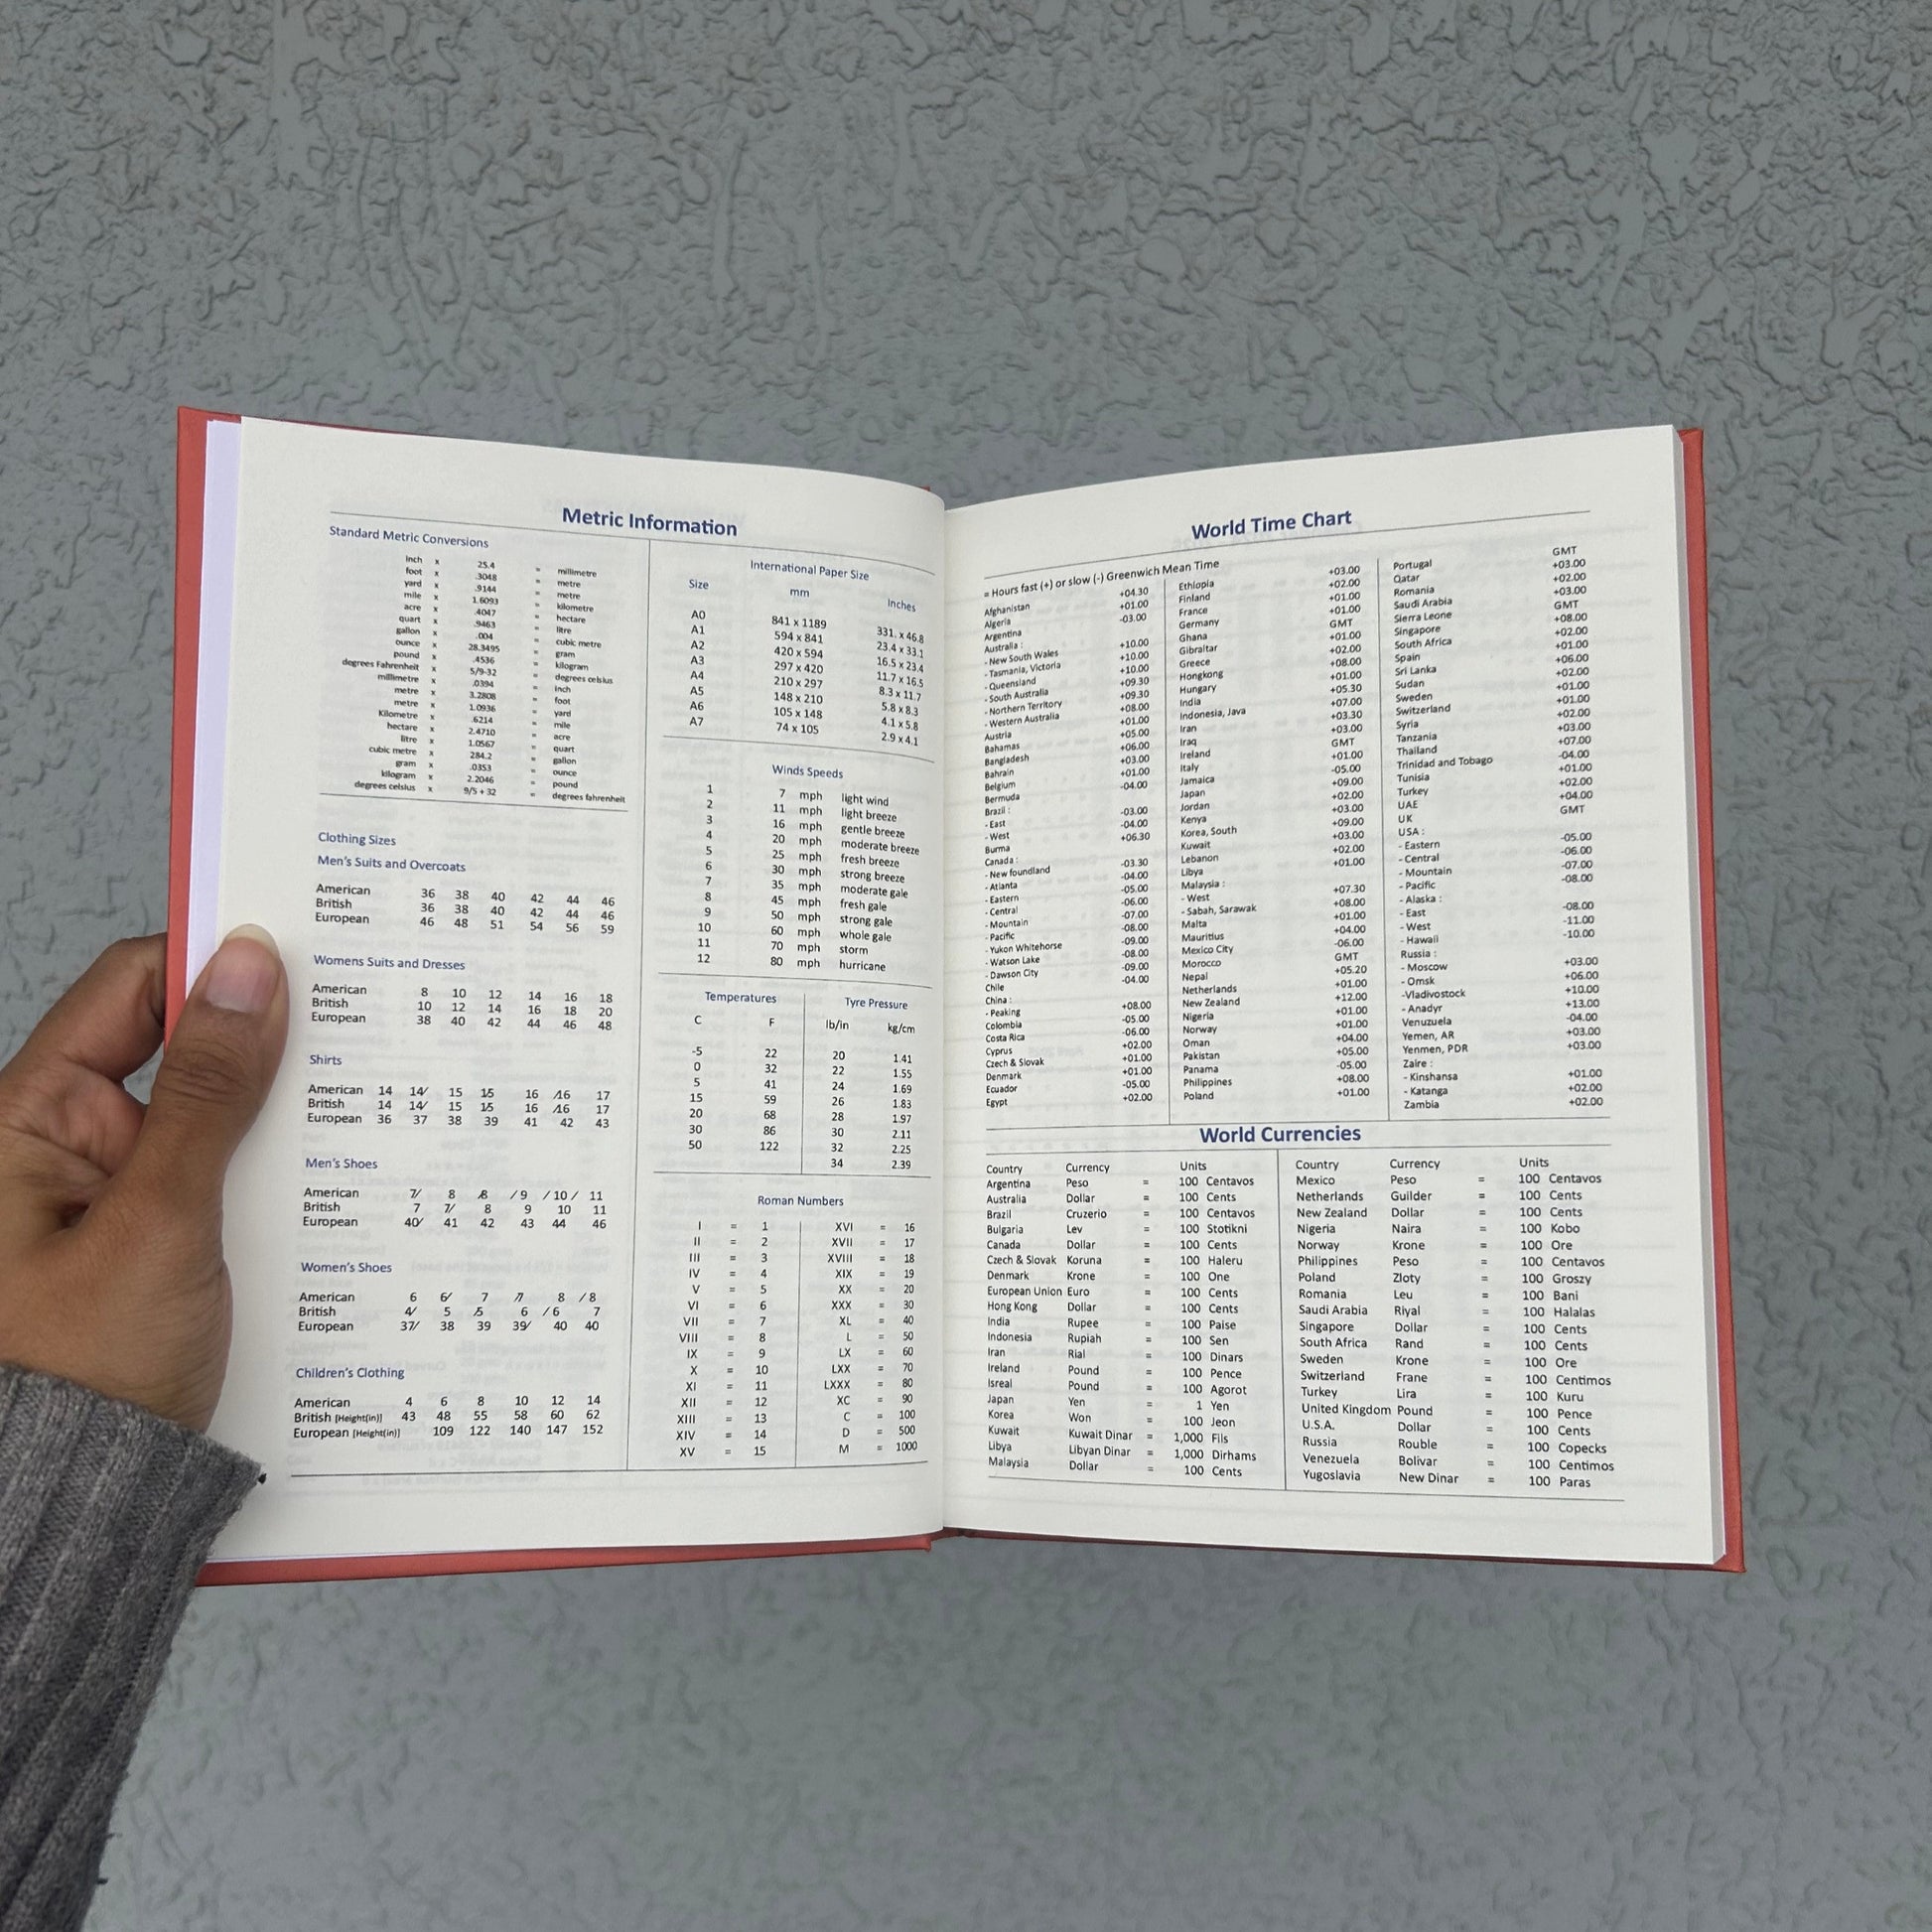 Metric Information
Standard Metric Conversions
Inch x 25.4 = millimetre
foot x .3048 = metre
yard x .9144 = metre
mile x 1.6093 = kilometre
acre x .4047 = hectare
quart x .9463 = litre
gallon x .004 = cubic metre
ounce x 28.3495 = gram
pound x .4536 = kilogram
degrees Fahrenheit x 5/9-32 = degrees celsius
millimetre x .0394 = Inch
metre x 3.2808 = foot
metre x 1.0936 = yard
Kilometre x .6214 = mile
hectare x 2.4710 = acre
litre x 1.0567 = quart
cubic metre x 284.2 = gallon
gram x .0353 = ounce
kilogram x 2.2046 = pound
degrees celsius x 9/5 + 32 = degrees fahrenheit
Clothing Sizes
Men's Suits and Overcoats
American 36 38 40 42 44 46
British 36 38 40 42 44 46
European 46 48 51 54 56 59
Womens Suits and Dresses
American 8 10 12 14 16 18
British 10 12 14 16 18 20
European 38 40 42 44 46 48
Shirts
American 14 14/ 15 15 16 /16 17
British 14 14/ 15 15 16 /16 17
European 36 37 38 39 41 42 43
Men's Shoes
American 7/ 8 /8 / 9 / 10 / 11
British 7 7/ 8 9 10 11
European 40/ 41 42 43 44 46
Women's Shoes
American 6 6/ 7 /7 8 / 8
British 4/ 5 /5 6 / 6 7
European 37/ 38 39 39/ 40 40
Children's Clothing
American 4 6 8 10 12 14
British [Height(in)] 43 48 55 58 60 62
European [Height(in)] 109 122 140 147 152
International Paper Size
Size mm Inches
A0 841 x 1189 331. x 46.8
A1 594 x 841 23.4 x 33.1
A2 420 x 594 16.5 x 23.4
A3 297 x 420 11.7 x 16.5
A4 210 x 297 8.3 x 11.7
A5 148 x 210 5.8 x 8.3
A6 105 x 148 4.1 x 5.8
A7 74 x 105 2.9 x 4.1
Winds Speeds
1 7 mph light wind
2 11 mph light breeze
3 16 mph gentle breeze
4 20 mph moderate breeze
5 25 mph fresh breeze
6 30 mph strong breeze
7 35 mph moderate gale
8 45 mph fresh gale
9 50 mph strong gale
10 60 mph whole gale
11 70 mph storm
12 80 mph hurricane
Temperatures
C F
-5 22
0 32
5 41
15 59
20 68
30 86
50 122
Tyre Pressure
lb/in kg/cm
20 1.41
22 1.55
24 1.69
26 1.83
28 1.97
30 2.11
32 2.25
34 2.39
Roman Numbers
I = 1 XVI = 16
II = 2 XVII = 17
III = 3 XVIII = 18
IV = 4 XIX = 19
V = 5 XX = 20
VI = 6 XXX = 30
VII = 7 XL = 40
VIII = 8 L = 50
IX = 9 LX = 60
X = 10 LXX = 70
XI = 11 LXXX = 80
XII = 12 XC = 90
XIII = 13 C = 100
XIV = 14 D = 500
XV = 15 M = 1000
World Time Chart
= Hours fast (+) or slow (-) Greenwich Mean Time
Afghanistan +04.30
Algeria +01.00
Argentina -03.00
Australia :
- New South Wales +10.00
- Tasmania, Victoria +10.00
- Queensland +10.00
- South Australia +09.30
- Northern Territory +09.30
- Western Australia +08.00
Austria +01.00
Bahamas +05.00
Bangladesh +06.00
Bahrain +03.00
Belgium +01.00
Bermuda -04.00
Brazil :
- East -03.00
- West -04.00
Burma +06.30
Canada :
- New foundland -03.30
- Atlanta -04.00
- Eastern -05.00
- Central -06.00
- Mountain -07.00
- Pacific -08.00
- Yukon Whitehorse -09.00
- Watson Lake -08.00
- Dawson City -09.00
Chile -04.00
China :
- Peaking +08.00
Colombia -05.00
Costa Rica -06.00
Cyprus +02.00
Czech & Slovak +01.00
Denmark +01.00
Ecuador -05.00
Egypt +02.00
Ethiopia +03.00
Finland +02.00
France +01.00
Germany +01.00
Ghana GMT
Gibraltar +01.00
Greece +02.00
Hongkong +08.00
Hungary +01.00
India +05.30
Indonesia, Java +07.00
Iran +03.30
Iraq +03.00
Ireland GMT
Italy +01.00
Jamaica -05.00
Japan +09.00
Jordan +02.00
Kenya +03.00
Korea, South +09.00
Kuwait +03.00
Lebanon +02.00
Libya +01.00
Malaysia :
- West +07.30
- Sabah, Sarawak +08.00
Malta +01.00
Mauritius +04.00
Mexico City -06.00
Morocco GMT
Nepal +05.20
Netherlands +01.00
New Zealand +12.00
Nigeria +01.00
Norway +01.00
Oman +04.00
Pakistan +05.00
Panama -05.00
Philippines +08.00
Poland +01.00
Portugal GMT
Qatar +03.00
Romania +02.00
Saudi Arabia +03.00
Sierra Leone GMT
Singapore +08.00
South Africa +02.00
Spain +01.00
Sri Lanka +06.00
Sudan +02.00
Sweden +01.00
Switzerland +01.00
Syria +02.00
Tanzania +03.00
Thailand +07.00
Trinidad and Tobago -04.00
Tunisia +01.00
Turkey +02.00
UAE +04.00
UK GMT
USA :
- Eastern -05.00
- Central -06.00
- Mountain -07.00
- Pacific -08.00
- Alaska :
- East -08.00
- West -11.00
- Hawaii -10.00
Russia :
- Moscow +03.00
- Omsk +06.00
-Vladivostock +10.00
- Anadyr +13.00
Venuzuela -04.00
Yemen, AR +03.00
Yenmen, PDR +03.00
Zaire :
- Kinshansa +01.00
- Katanga +02.00
Zambia +02.00
World Currencies
Country Currency Units
Argentina Peso = 100 Centavos
Australia Dollar = 100 Cents
Brazil Cruzerio = 100 Centavos
Bulgaria Lev = 100 Stotikni
Canada Dollar = 100 Cents
Czech & Slovak Koruna = 100 Haleru
Denmark Krone = 100 One
European Union Euro = 100 Cents
Hong Kong Dollar = 100 Cents
India Rupee = 100 Paise
Indonesia Rupiah = 100 Sen
Iran Rial = 100 Dinars
Ireland Pound = 100 Pence
Isreal Pound = 100 Agorot
Japan Yen = 1 Yen
Korea Won = 100 Jeon
Kuwait Kuwait Dinar = 1,000 Fils
Libya Libyan Dinar = 1,000 Dirhams
Malaysia Dollar = 100 Cents
Country Currency Units
Mexico Peso = 100 Centavos
Netherlands Guilder = 100 Cents
New Zealand Dollar = 100 Cents
Nigeria Naira = 100 Kobo
Norway Krone = 100 Ore
Philippines Peso = 100 Centavos
Poland Zloty = 100 Groszy
Romania Leu = 100 Bani
Saudi Arabia Riyal = 100 Halalas
Singapore Dollar = 100 Cents
South Africa Rand = 100 Cents
Sweden Krone = 100 Ore
Switzerland Frane = 100 Centimos
Turkey Lira = 100 Kuru
United Kingdom Pound = 100 Pence
U.S.A. Dollar = 100 Cents
Russia Rouble = 100 Copecks
Venezuela Bolivar = 100 Centimos
Yugoslavia New Dinar = 100 Paras